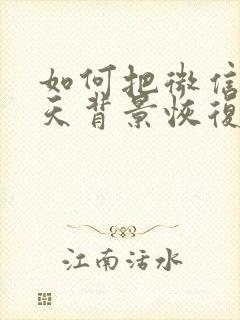 如何把微信
天背景恢復
江南活水